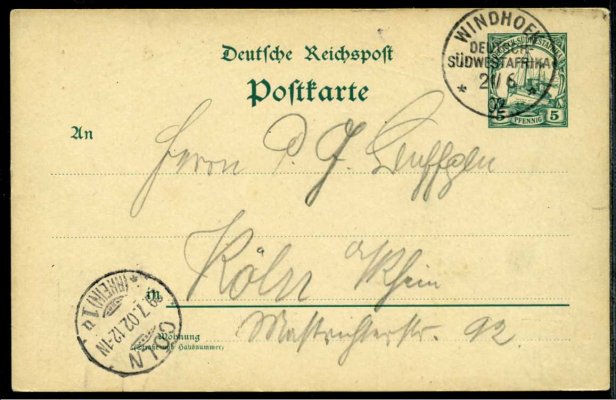 Deutsche Reichspost
Postkarte
WINDHOEK
DEUTSCH-
SÜDWESTAFRIKA
21/6
02
5 PFENNIG 5
An
Herrn P. J.
Köln a/Rhein
in
Mastrichterstr. 92.
Wohnung
(Straße und Hausnummer)
CÖLN
(RHEIN) 1
9.7.02.12-1N